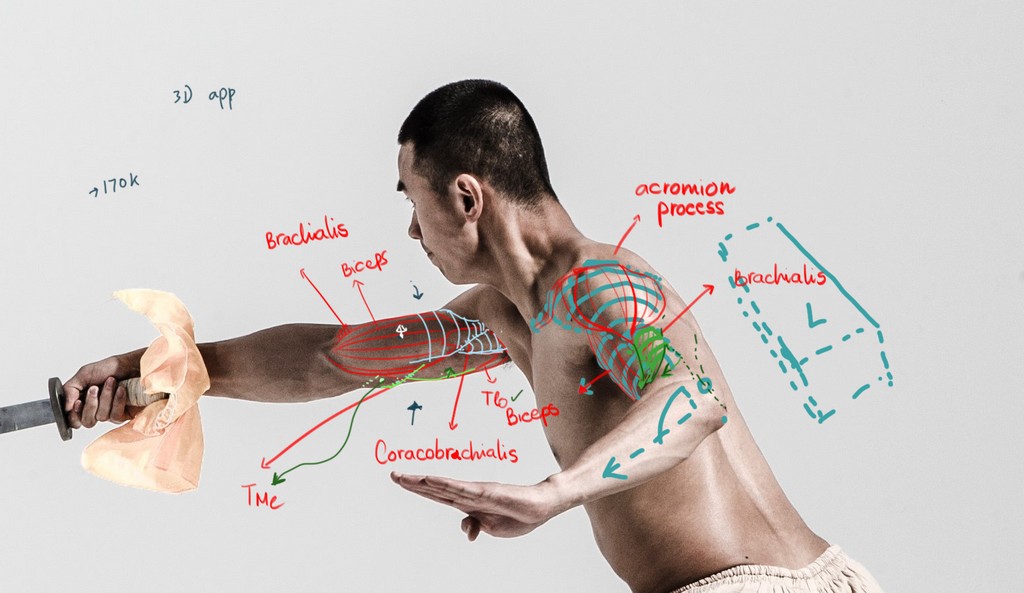 3D app
→170K
acromion
process
Brachialis
Biceps
Brachialis
Tlo ✓
Biceps
Coracobrachialis
TMe
L